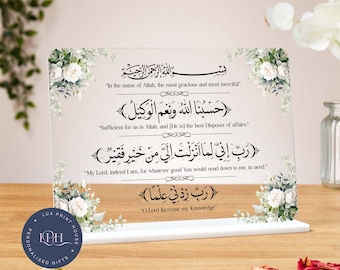 بسم الله الرحمن الرحيم
"In the name of Allah, the most gracious and most merciful"
حَسْبُنَا اللهُ وَنِعْمَ الْوَكِيْلُ
"Sufficient for us is Allah, and [He is] the best Disposer of affairs."
رَبِّ اِنِّي لِمَا اَنْزَلْتَ اِلَيَّ مِنْ خَيْرٍ فَقِيْرٌ
"My Lord, indeed I am, for whatever good You would send down to me, in need."
رَبِّ زِدْنِي عِلْمًا
"O Lord Increase my Knowledge"
LUX PRINT HOUSE
LPH
PERSONALISED GIFTS